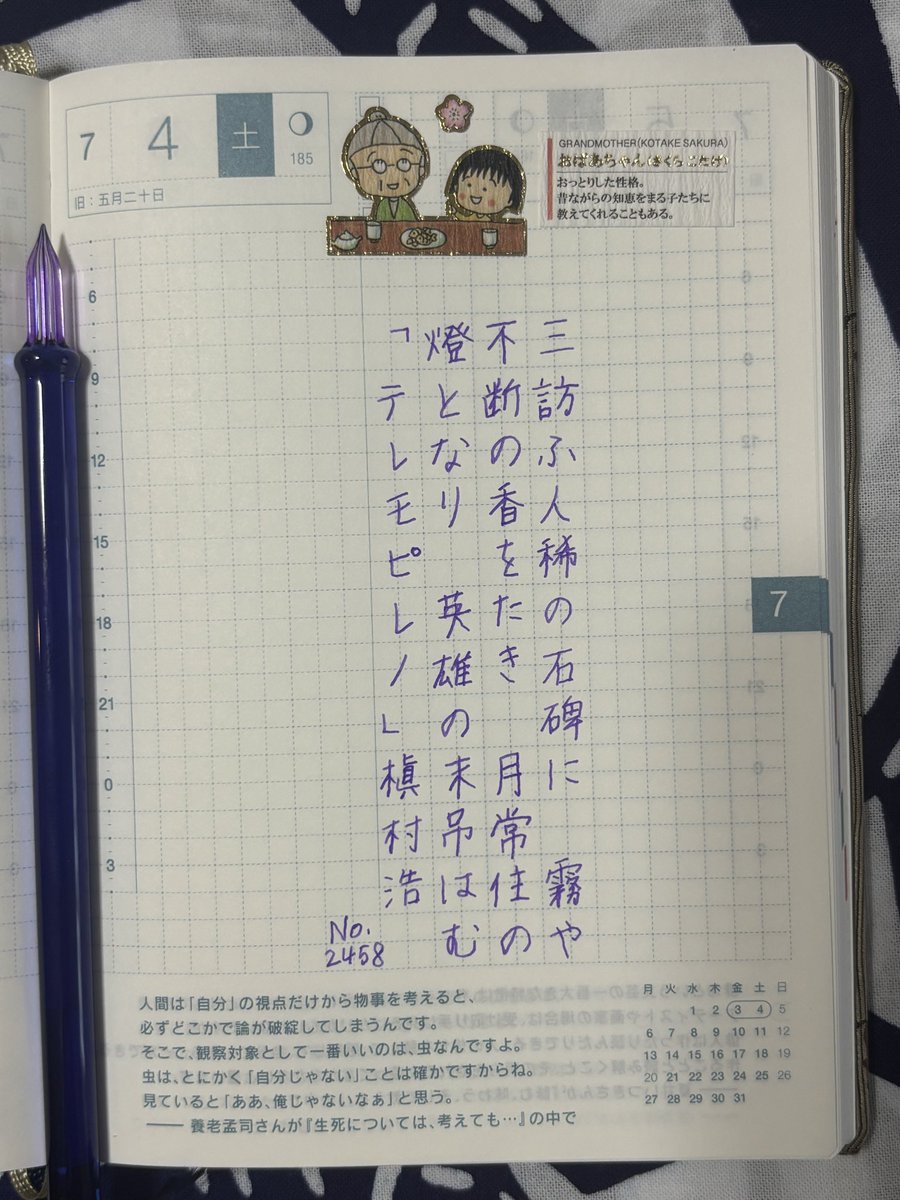 7 4 土
185
旧:五月二十日
GRANDMOTHER(KOTAKE SAKURA)
おばあちゃん(さくら こたけ)
おっとりした性格。
昔ながらの知恵をまる子たちに
教えてくれることもある。
三訪ふ人稀の石碑に 霧や
不断の香をたき 月常住の
燈となり 英雄の末吊はむ
「テレモピレノ」槇村浩
No.
2458
6
9
12
15
18
21
0
3
7
人間は「自分」の視点だけから物事を考えると、
必ずどこかで論が破綻してしまうんです。
そこで、観察対象として一番いいのは、虫なんですよ。
虫は、とにかく「自分じゃない」ことは確かですからね。
見ていると「ああ、俺じゃないなぁ」と思う。
―― 養老孟司さんが『生死については、考えても…』の中で
月 火 水 木 金 土 日
1 2 3 4 5
6 7 8 9 10 11 12
13 14 15 16 17 18 19
20 21 22 23 24 25 26
27 28 29 30 31